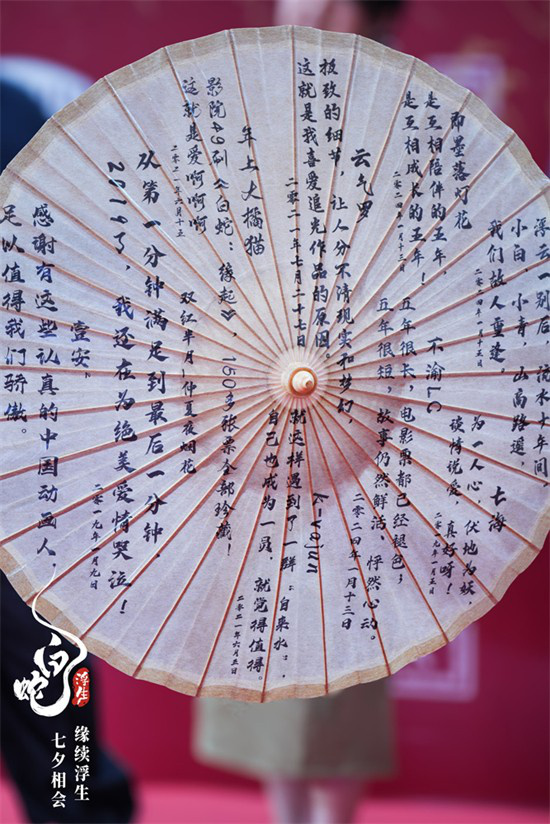 浮云一别后，流水十年间，
小白、小青，山高路遥，
我们故人重逢。
二〇二四年一月十五日
七海
为一人心，伏地为妖，
谈情说爱，真好呀！
二〇一九年一月五日
即墨落灯花
是互相陪伴的五年，
是互相成长的五年！
二〇二四年一月十三日
不渝LC
五年很长，电影票都已经褪色；
五年很短，故事仍然鲜活、怦然心动。
二〇二四年一月十三日
云气罗
极致的细节，让人分不清现实和梦幻，
这就是我喜爱追光作品的原因。
二〇二一年七月二十七日
k-yajun
就这样遇到了一群“自来水”，
自己也成为一员，就觉得值得。
二〇二一年六月五日
年上大橘猫
影院49刷《白蛇：缘起》，150多张票全部珍藏！
这就是爱啊啊啊
二〇二一年六月十五
双红半月·仲夏夜烟花
从第一分钟满足到最后一分钟，
2019了，我还在为绝美爱情哭泣！
二〇一九年一月九日
壹安
感谢有这些认真的中国动画人，
足以值得我们骄傲。
白蛇
浮生
缘续浮生
七夕相会